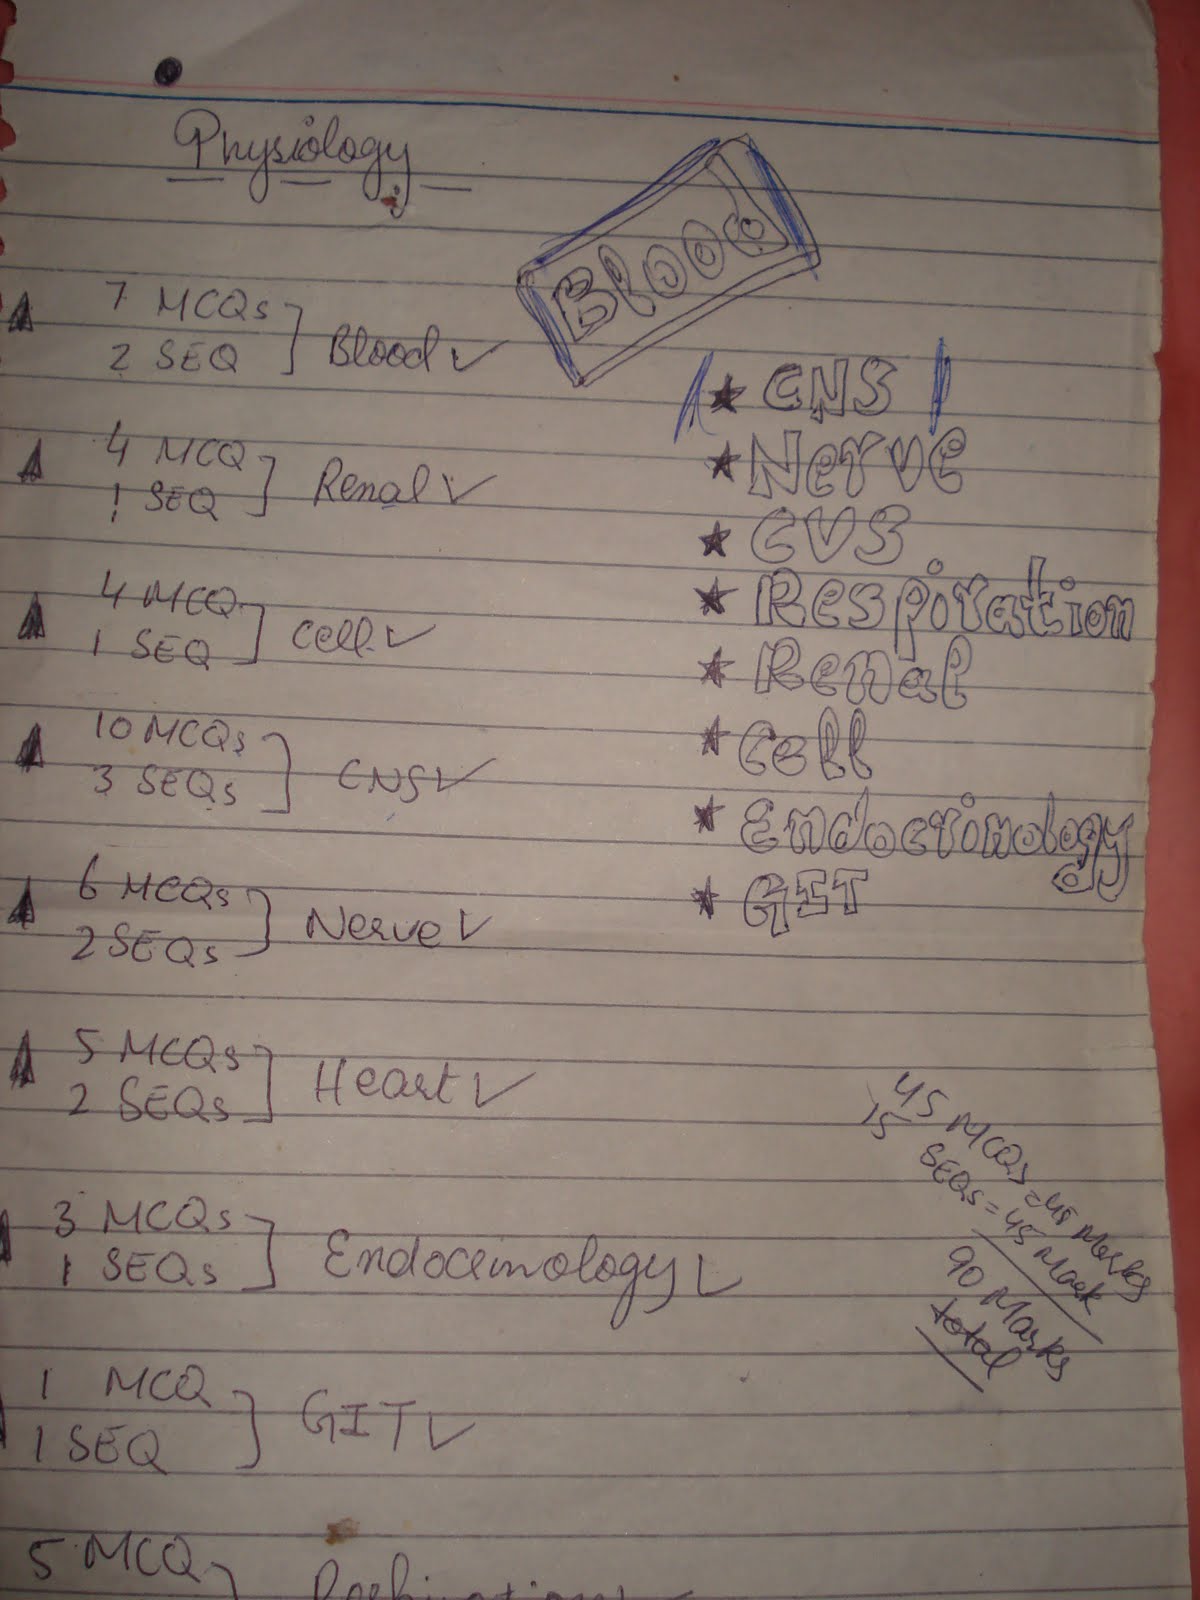 Physiology
Blood
7 MCQs
2 SEQ
Blood
4 MCQ
1 SEQ
Renal
4 MCQ
1 SEQ
Cell
10 MCQs
3 SEQs
CNS
6 MCQs
2 SEQs
Nerve
5 MCQs
2 SEQs
Heart
3 MCQs
1 SEQs
Endocrinology
1 MCQ
1 SEQ
GIT
5 MCQ
Respiration
★ CNS
★ Nerve
★ CVS
★ Respiration
★ Renal
★ Cell
★ Endocrinology
★ GIT
45 MCQs = 45 Marks
15 SEQs = 45 Mark
90 Marks
total